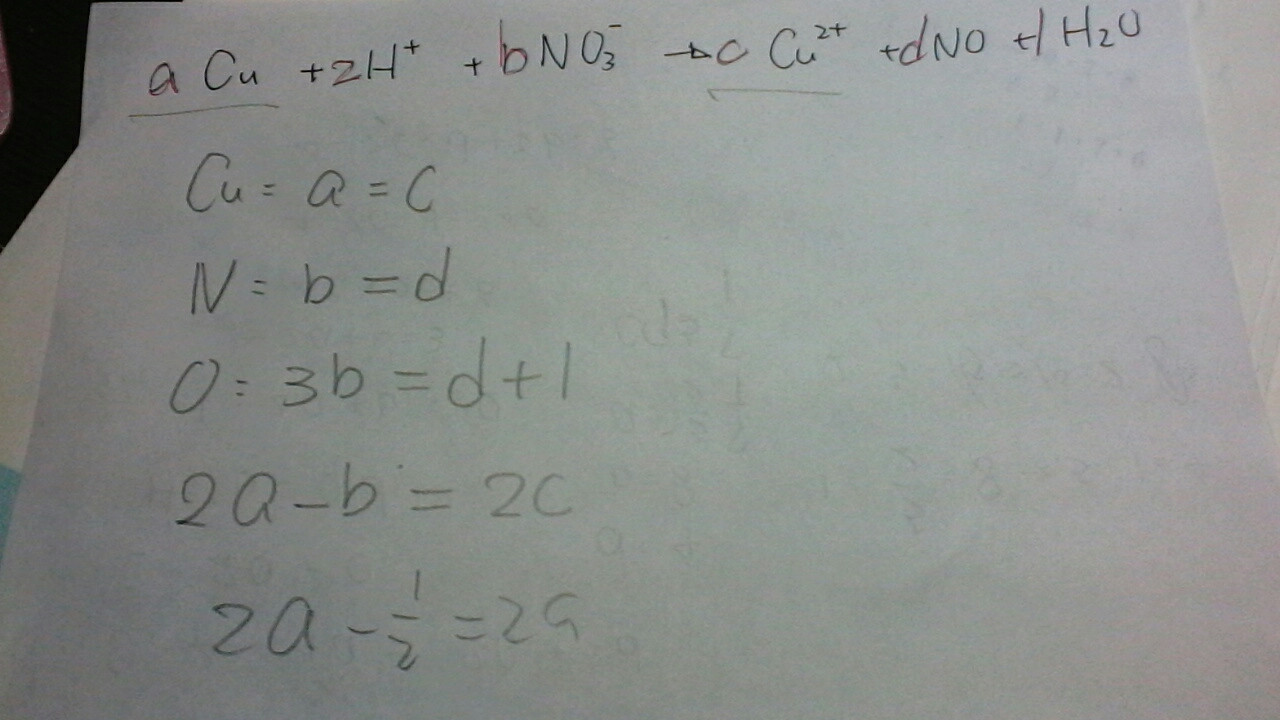 a Cu + 2H⁺ + bNO₃⁻ → c Cu²⁺ + dNO + 1 H₂O
Cu: a = c
N: b = d
O: 3b = d+1
2a - b = 2c
2a - 1/2 = 2a